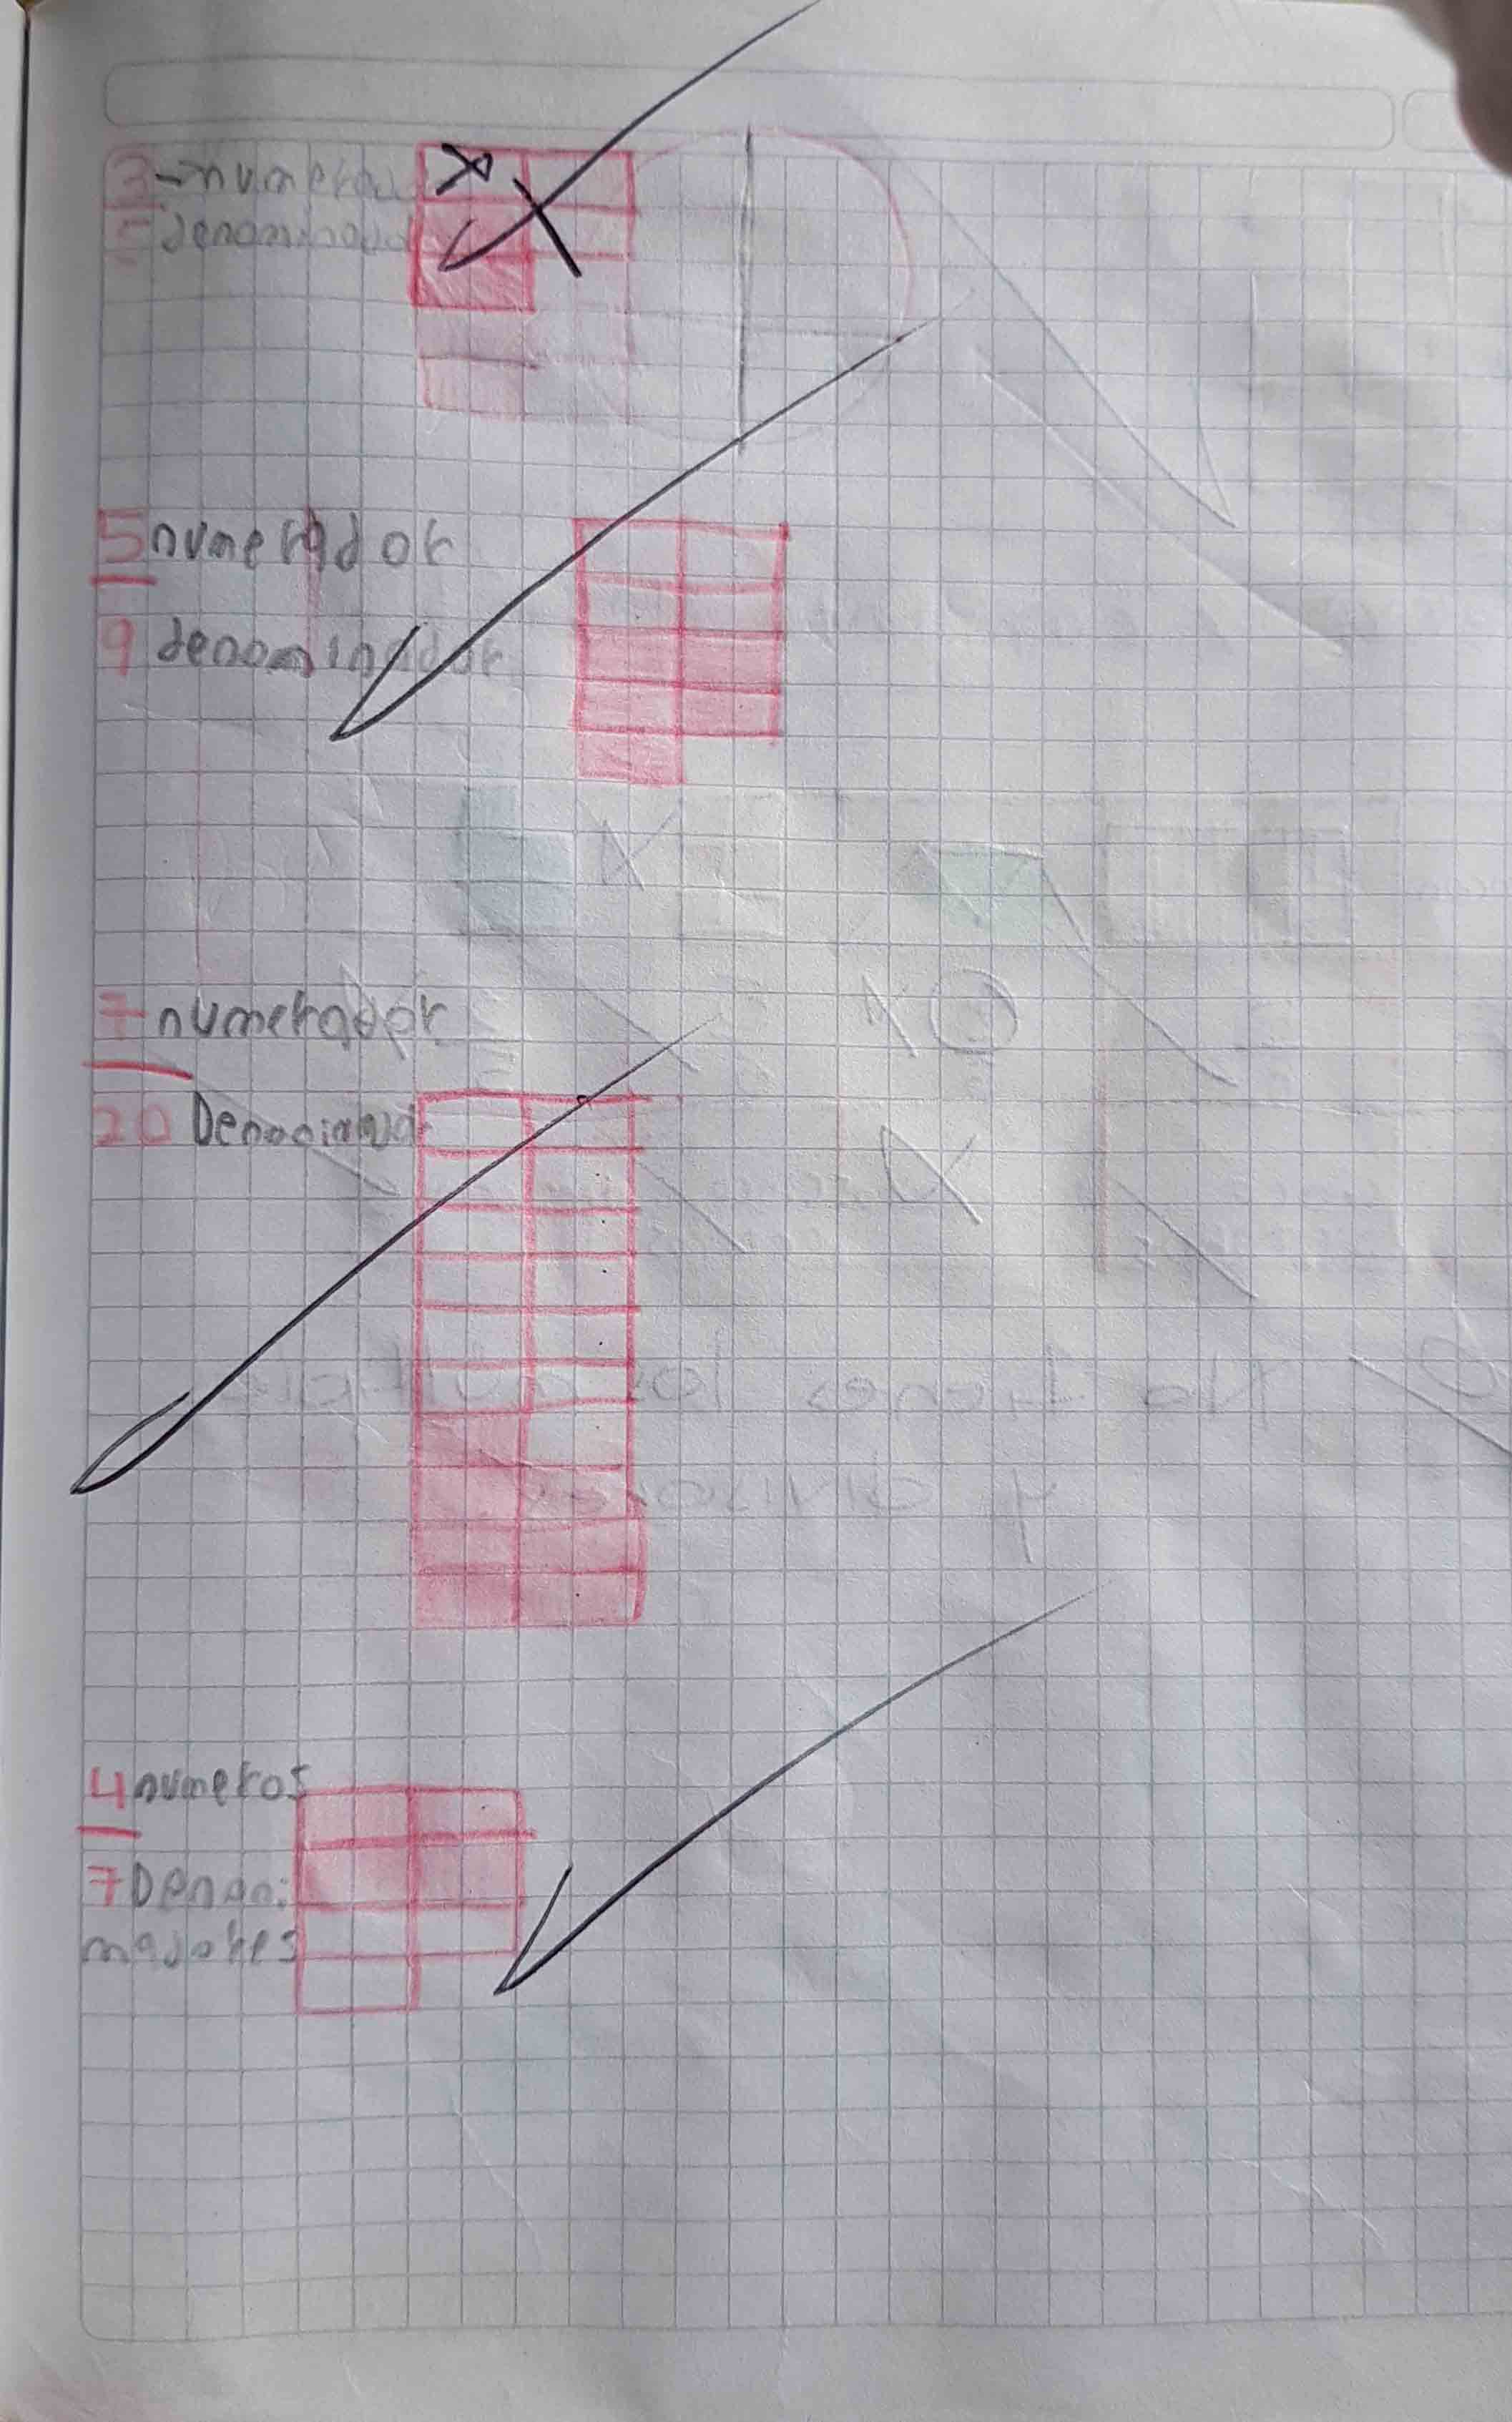 3 numerad
denominado
5 numerador
9 denominador
7 numerador
20 Denocinad
4 numeros
7 Denoni
madores